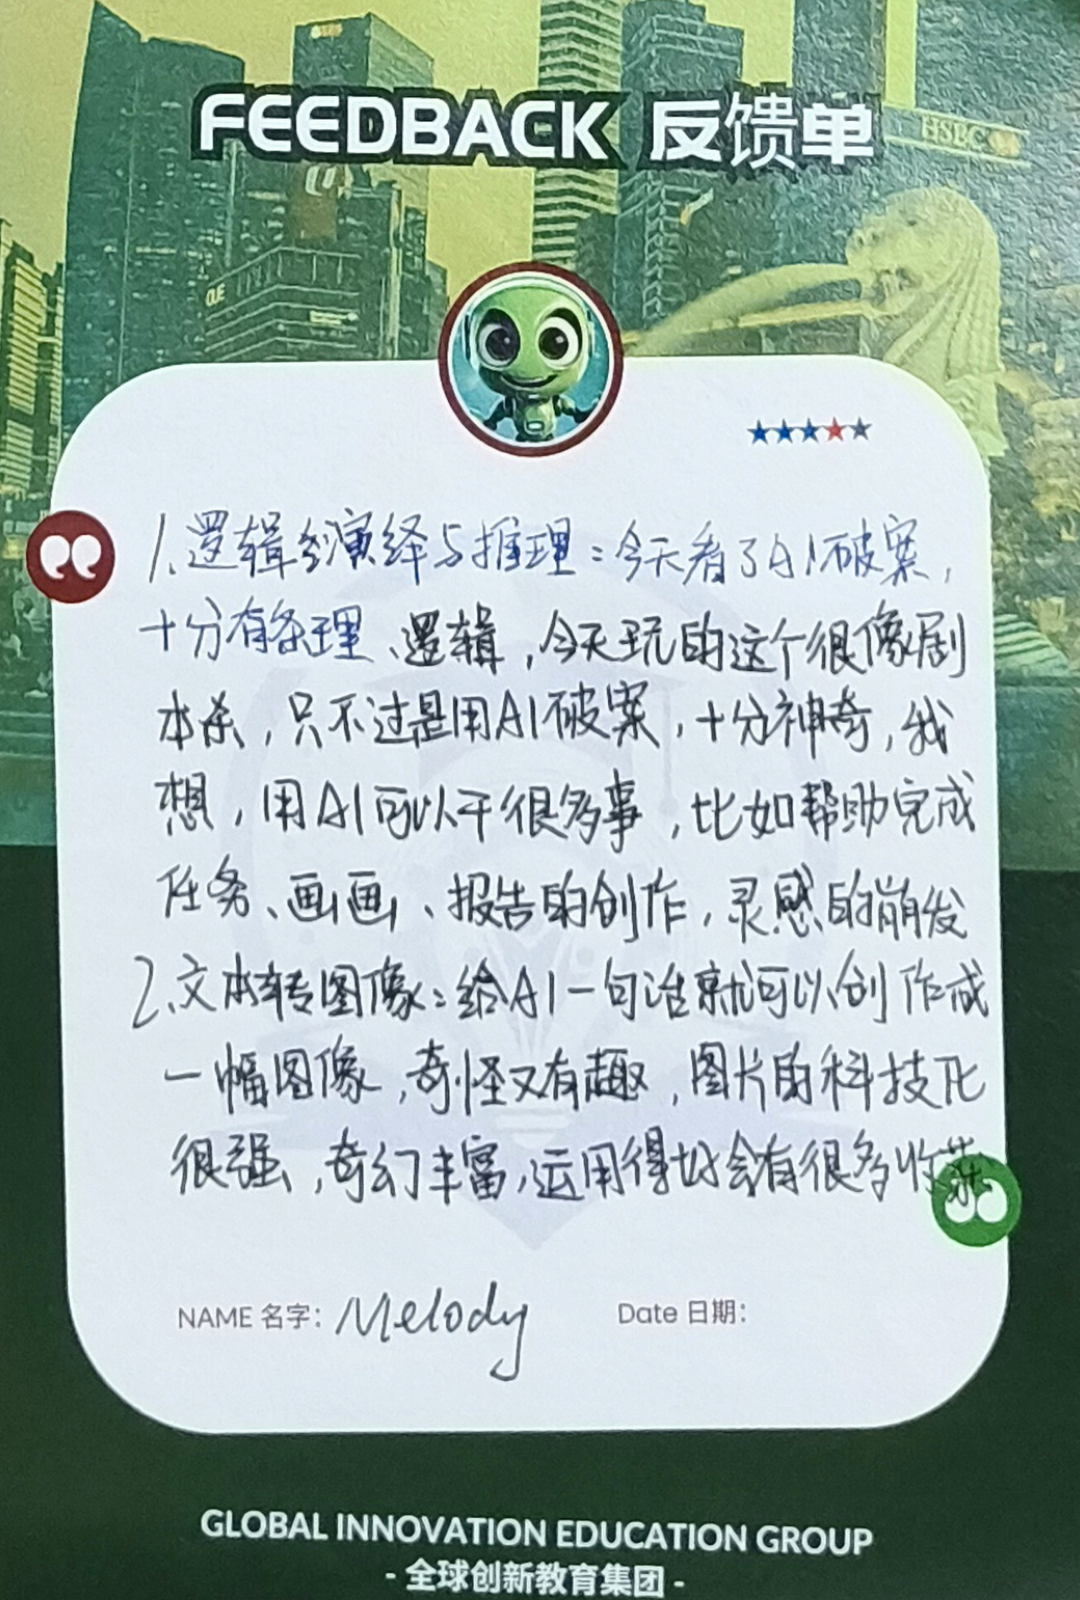 FEEDBACK 反馈单
HSBC
OUE
1.逻辑演绎与推理：今天看了AI破案，
十分有条理、逻辑，今天玩的这个很像剧
本杀，只不过是用AI破案，十分神奇，我
想，用AI可以干很多事，比如帮助完成
任务、画画、报告的创作，灵感的崩发
2.文本转图像：给AI一句话就可以创作成
一幅图像，奇怪又有趣，图片的科技化
很强，奇幻丰富，运用得好会有很多收获
NAME 名字： Melody
Date 日期：
GLOBAL INNOVATION EDUCATION GROUP
- 全球创新教育集团 -